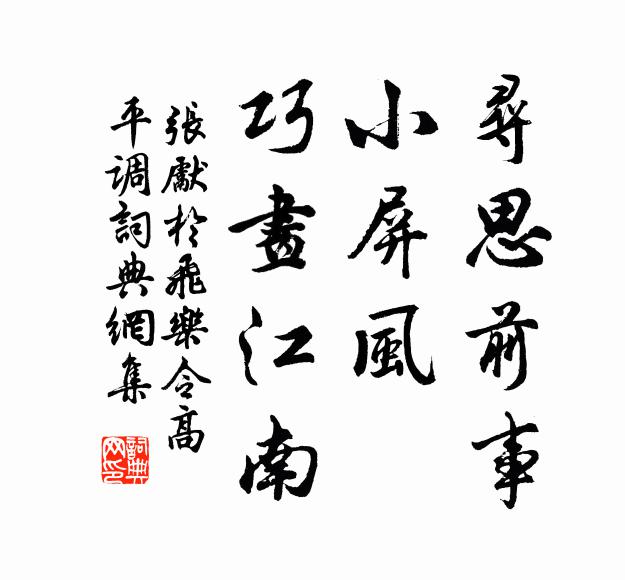 尋思前事
小屏風
巧畫江南
張獻於飛樂令高
平调詞典網集
詞典網印